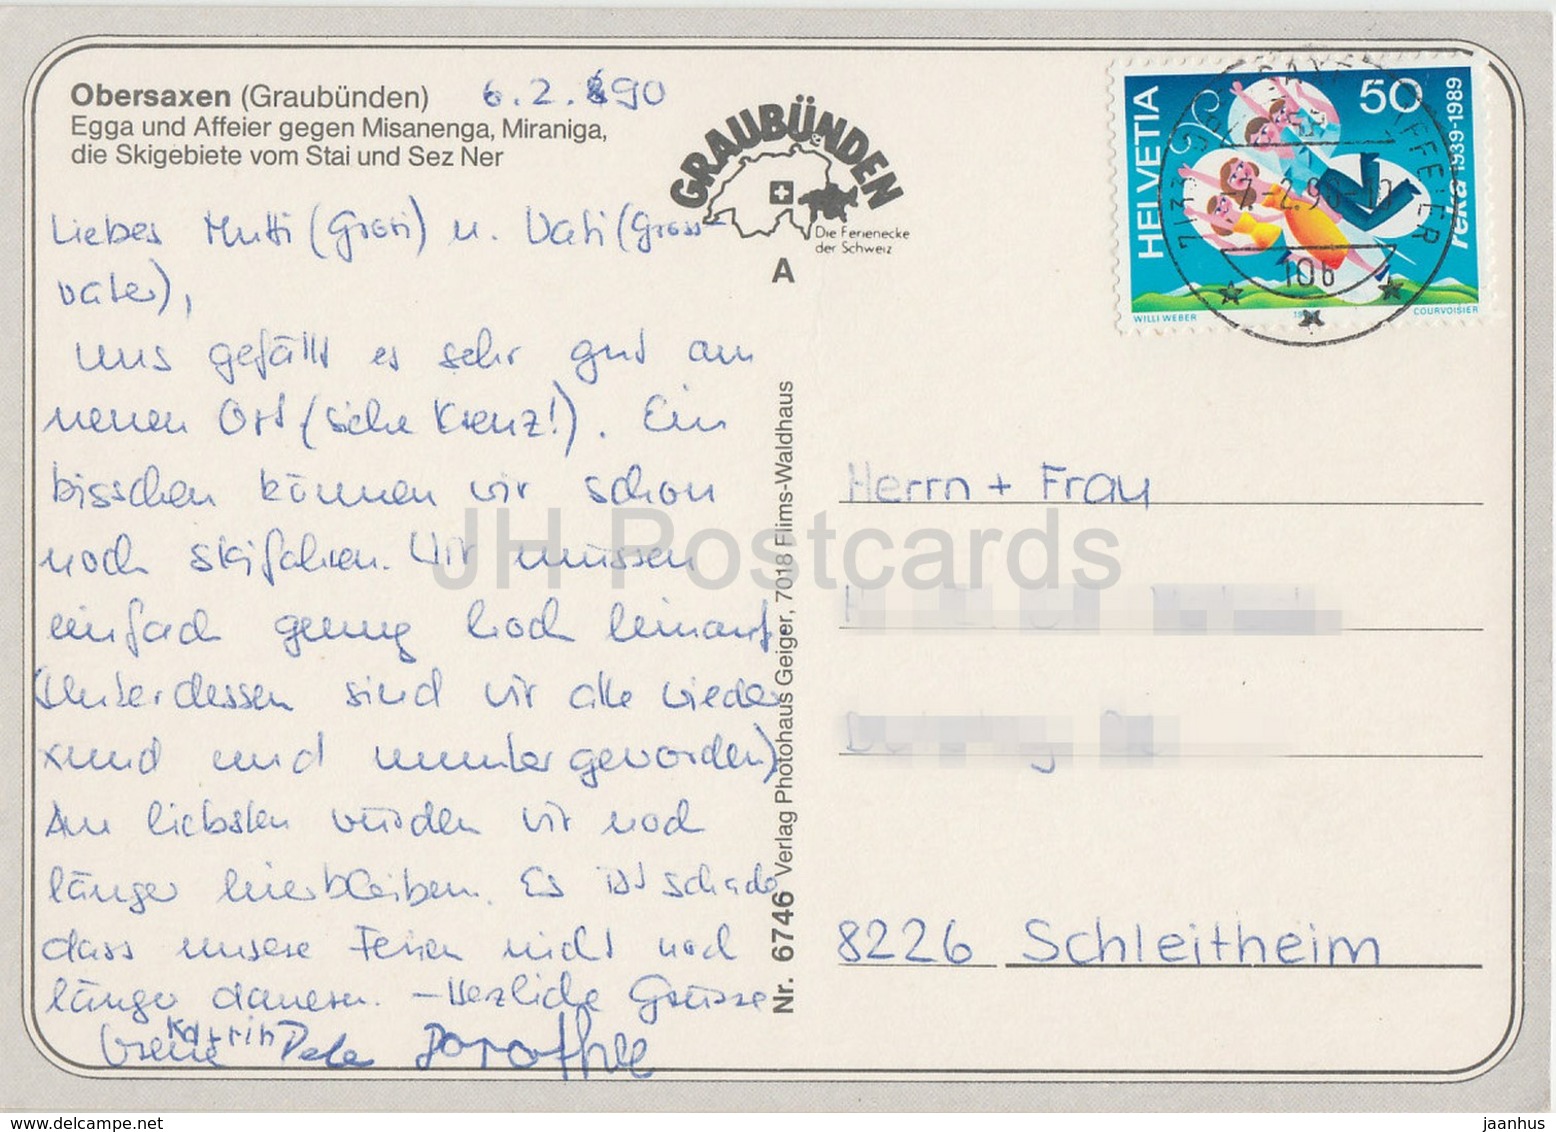 Obersaxen (Graubünden) 6.2.90
Egga und Affeier gegen Misanenga, Miraniga,
die Skigebiete vom Stai und Sez Ner
GRAUBÜNDEN
Die Ferienecke
der Schweiz
A
Liebes Mutti (Groti) u. Vati (Gross-
vater),
uns gefällt es sehr gut am
neuen Ort (siehe Kreuz!). Ein
bisschen können wir schon
noch skifahren. Wir müssen
einfach genug hoch hinauf.
(Unterdessen sind wir alle wieder
xund und munter geworden)
Am liebsten würden wir noch
länger hierbleiben. Es ist schade
dass unsere Ferien nicht noch
länger dauern. – Herzliche Grüsse
Irene Katrin Peter Dorothee
Nr. 6746 Verlag Photohaus Geiger, 7018 Flims-Waldhaus
HELVETIA
50
reka 1939-1989
WILLI WEBER
COURVOISIER
7133
AFFEIER
-7.-2.90-10
106
Herrn + Frau
8226 Schleitheim
JH Postcards
delcampe.net
jaanhus